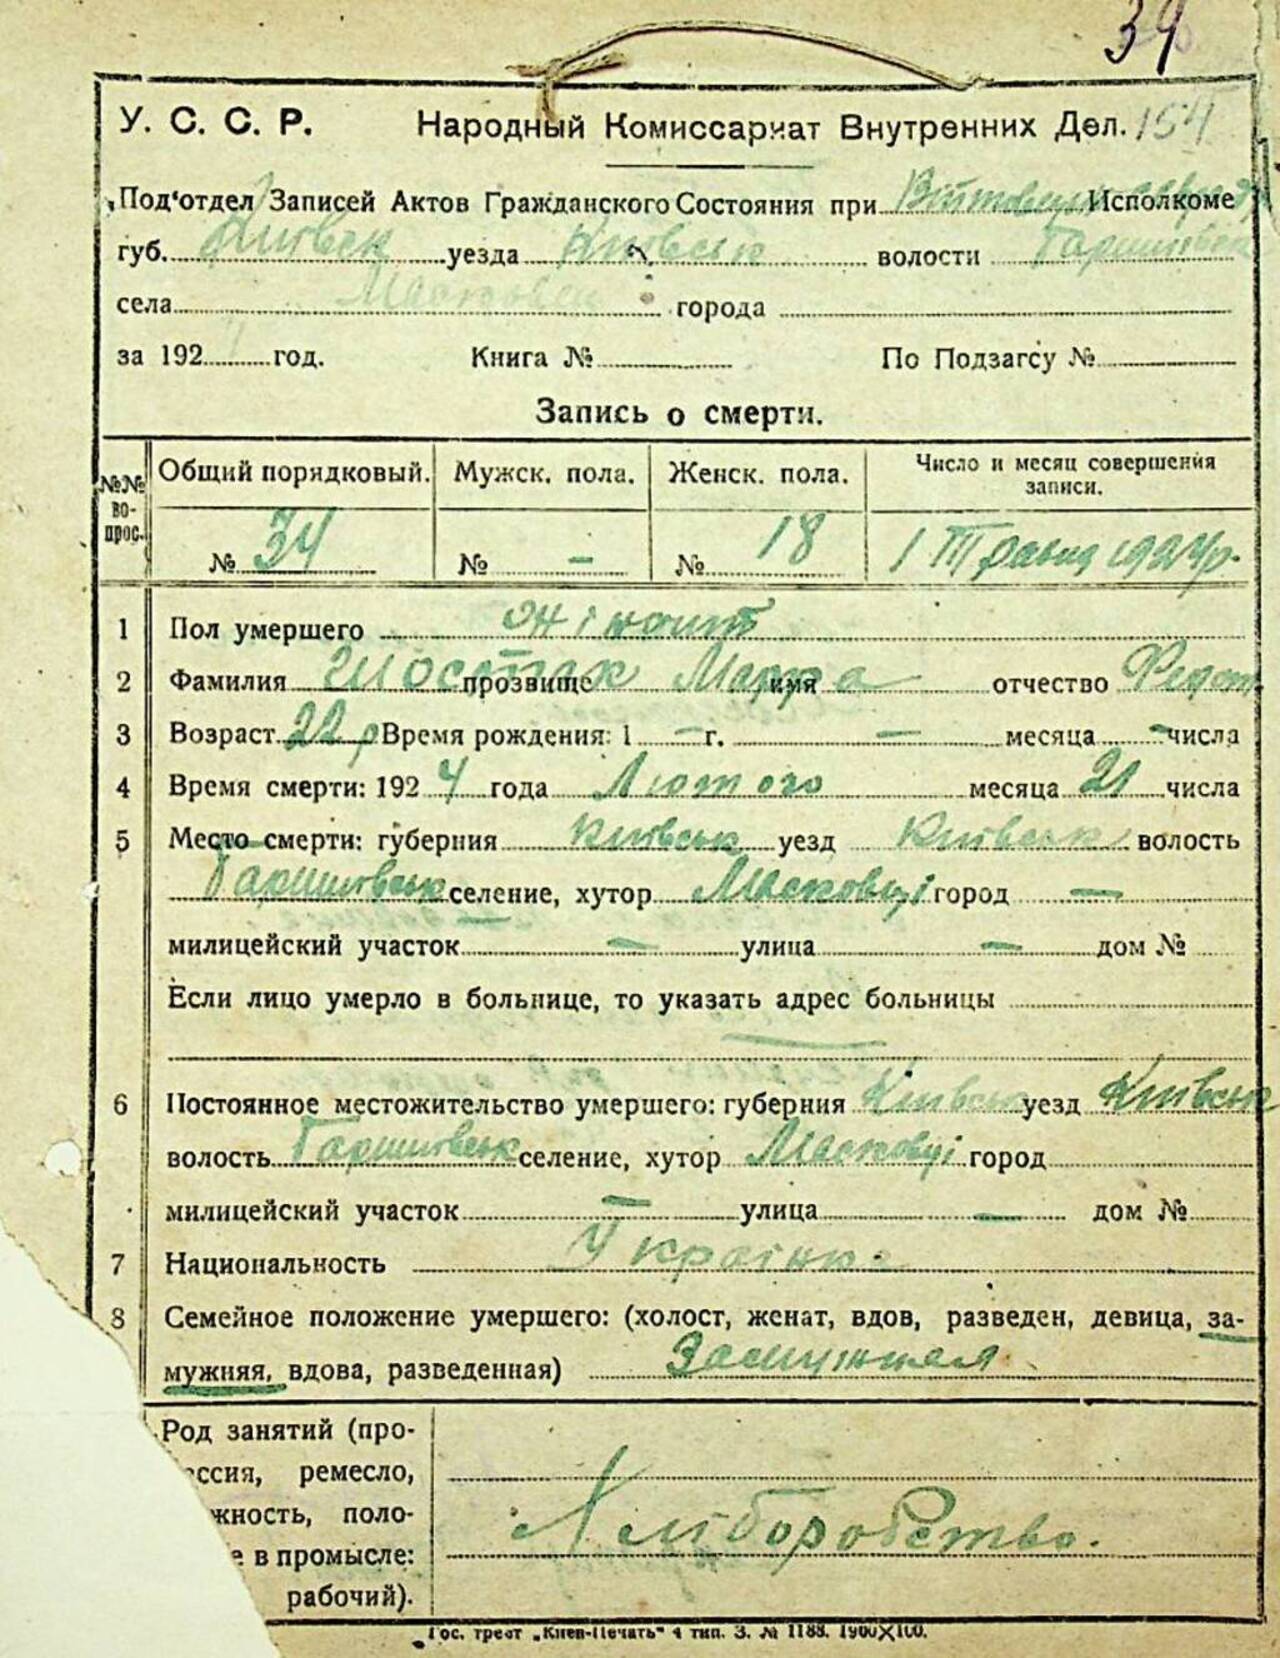 39
У. С. С. Р. Народный Комиссариат Внутренних Дел. 154
Под‘отдел Записей Актов Гражданского Состояния при Исполкоме
губ. Київськ уезда Київськ волости
села города
за 192 4 год. Книга № По Подзагсу №
Запись о смерти.
№№ вопрос. Общий порядковый. Мужск. пола. Женск. пола. Число и месяц совершения записи.
№ 34 № – № 18 1 Травня 1924 р.
1 Пол умершего жіночит
2 Фамилия Шостак прозвище Марфа имя отчество
3 Возраст 22 р Время рождения: 1 – г. – месяца – числа
4 Время смерти: 192 4 года Лютого месяца 21 числа
5 Место смерти: губерния Київськ уезд Київськ волость
селение, хутор Масковці город –
милицейский участок – улица – дом №
Если лицо умерло в больнице, то указать адрес больницы
6 Постоянное местожительство умершего: губерния Київськ уезд Київськ
волость селение, хутор Масковці город
милицейский участок – улица – дом №
7 Национальность Українка
8 Семейное положение умершего: (холост, женат, вдов, разведен, девица, за-
мужняя, вдова, разведенная) Замужняя
Род занятий (про-
ссия, ремесло,
жность, поло-
е в промысле:
рабочий).
Хліборобство.
Гос. трест „Киев-Печать“ 4 тип. З. № 1188. 1900X100.